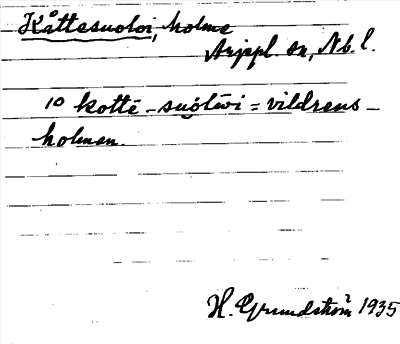 Kåttesuoloi, holme
Arjepl. sn, Nb. l.
10 kottē-suo̩lŭi = vildrens-
holmen.
H. Grundström 1935